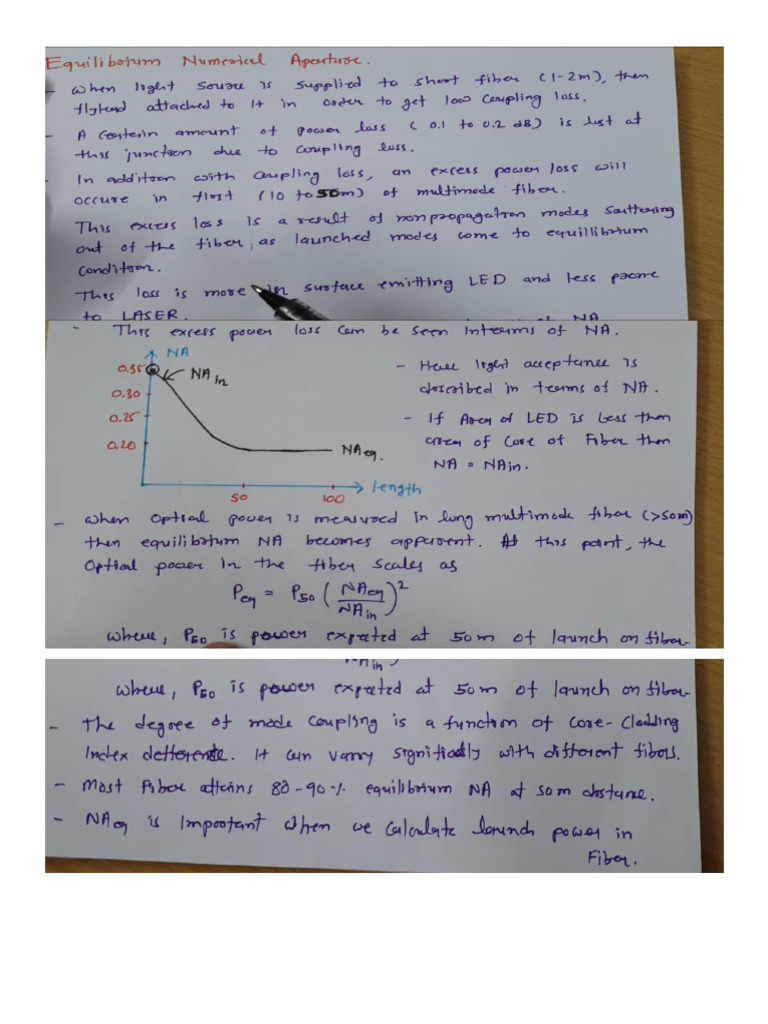 Equilibrium Numerical Aperture.
- When light source is supplied to short fiber (1-2m), then
flylead attached to it in order to get low coupling loss.
- A certain amount of power loss (0.1 to 0.2 dB) is lost at
this junction due to coupling loss.
- In addition with coupling loss, an excess power loss will
occure in first (10 to 50m) of multimode fiber.
This excess loss is a result of nonpropagation modes scattering
out of the fiber as launched modes come to equillibrium
condition.
This loss is more in surface emitting LED and less prone
to LASER.
- This excess power loss can be seen interms of NA.
NA
0.35
NA in
0.30
0.25
0.20
NAeq.
length
50
100
- Here light acceptance is
described in terms of NA.
- If Area of LED is less then
area of core of Fiber then
NA = NAin.
- When optical power is measured in long multimode fiber (>50m)
then equilibrium NA becomes apperent. At this point, the
optical power in the fiber scales as
Peq = P50 (NAeq / NAin)²
where, P50 is power expected at 50m of launch on fiber
NAin
where, P50 is power expected at 50m of launch on fiber
- The degree of mode coupling is a function of core-cladding
index difference. It can varry significally with different fibers.
- Most Fiber attains 80-90% equilibrium NA at 50m distance.
- NAeq is important when we calculate launch power in
Fiber.